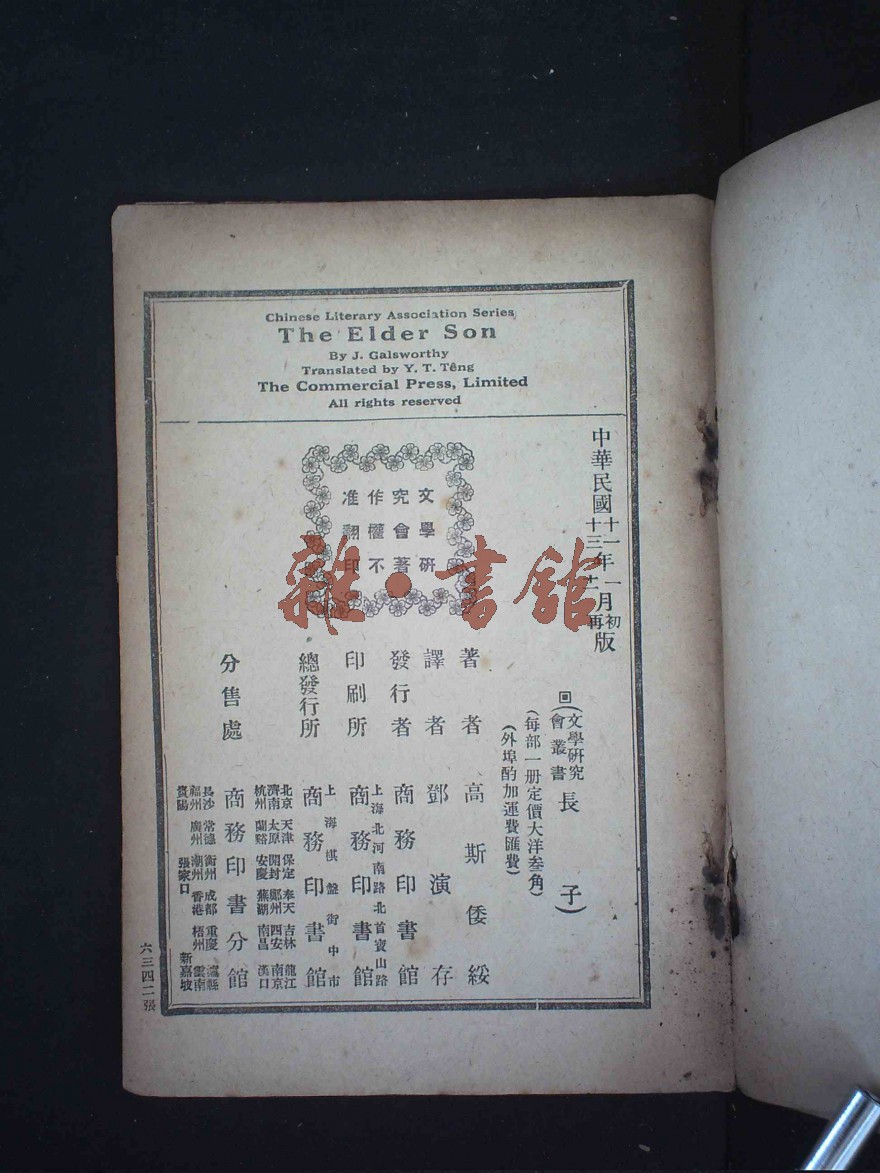 Chinese Literary Association Series
The Elder Son
By J. Galsworthy
Translated by Y. T. Têng
The Commercial Press, Limited
All rights reserved
中華民國十一年一月初版
十三年十二月再版
回(文學研究會叢書長子)
(每部一册定價大洋叁角)
(外埠酌加運費匯費)
文學研
究會著
作權不
准翻印
著者 高斯倭綏
譯者 鄧演存
發行者 商務印書館
印刷所 上海北河南路北首寶山路
商務印書館
總發行所 上海棋盤街中市
商務印書館
分售處
北京 天津 保定 奉天 吉林 龍江
濟南 太原 開封 鄭州 西安 南京
杭州 蘭谿 安慶 蕪湖 南昌 漢口
商務印書分館
長沙 常德 衡州 成都 重慶 瀘縣
福州 廣州 潮州 香港 梧州 雲南
貴陽 張家口 新嘉坡
六三四二張
雜·書館